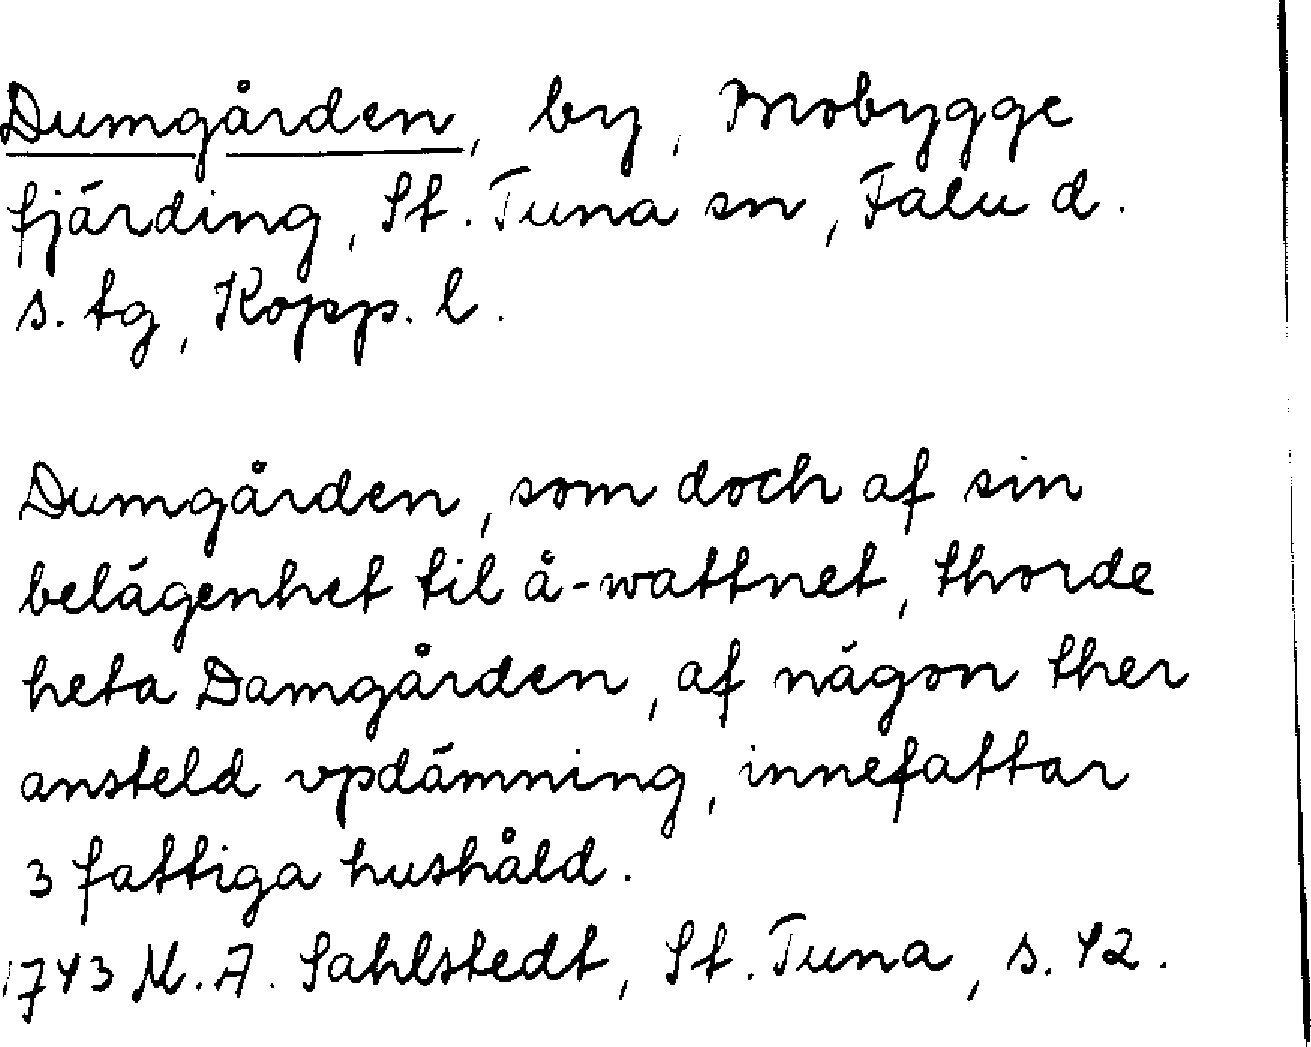 Dumgården, by, Mobygge
fjärding, St. Tuna sn, Falu d.
s. tg, Kopp. l.
Dumgården, som doch af sin
belägenhet til å-wattnet, thorde
heta Damgården, af någon ther
ansteld vpdämning, innefattar
3 fattiga hushåld.
1743 M. A. Sahlstedt, St. Tuna, s. 42.